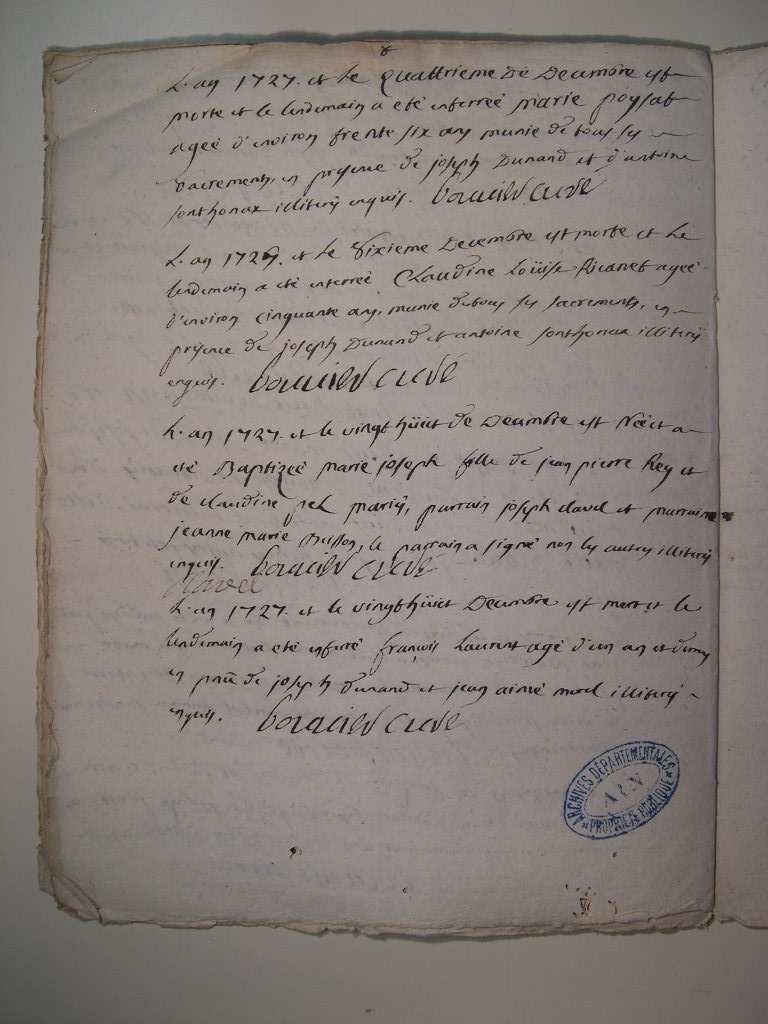 L'an 1727. et le quattrieme de Decembre est
morte et le lendemain a eté enterreé Marie poysat
ageé d'environ trente six ans munie de tous ses
sacrements, en presence de joseph Dunand et d'antoine
sonthonax illiterés enquis. curé
L'an 1727. et le sixieme Decembre est morte et le
lendemain a eté enterreé Claudine Loüise ageé
d'environ cinquante ans, munie de tous ses sacrements, en
presence de joseph Dunand et antoine sonthonax illiterés
enquis. curé
L'an 1727. et le vingt hüict de Decembre est Neé et a
eté Baptizeé marie joseph fille de jean pierre Rey et
de claudine mariés, parrain joseph clavel et marraine
jeanne marie Buffon, le parrain a signé non les autres illiterés
enquis. curé
clavel
L'an 1727. et le vingt hüict Decembre est mort et le
lendemain a eté enterré françois Laurent agé d'un an et demy
en pnce de joseph Dunand et jean aimé morel illiterés
enquis. curé
ARCHIVES DÉPARTEMENTALES
AIN
PROPRIÉTÉ PUBLIQUE